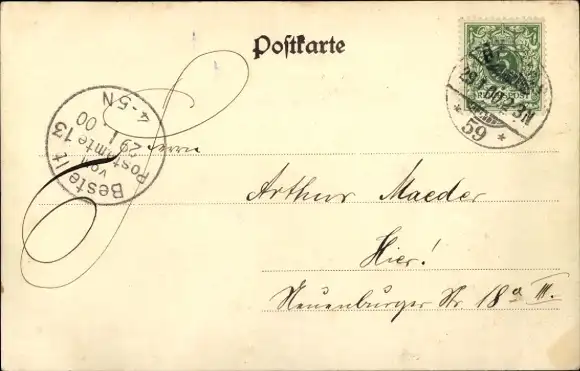 Postkarte
REICHSPOST
29.1.00 2-3N
* 59 *
Bestellt
vom
Postamte 13
29 1 00
4-5N
Herrn
Arthur Maeder
Hier!
Neuenburger Str. 18a III.